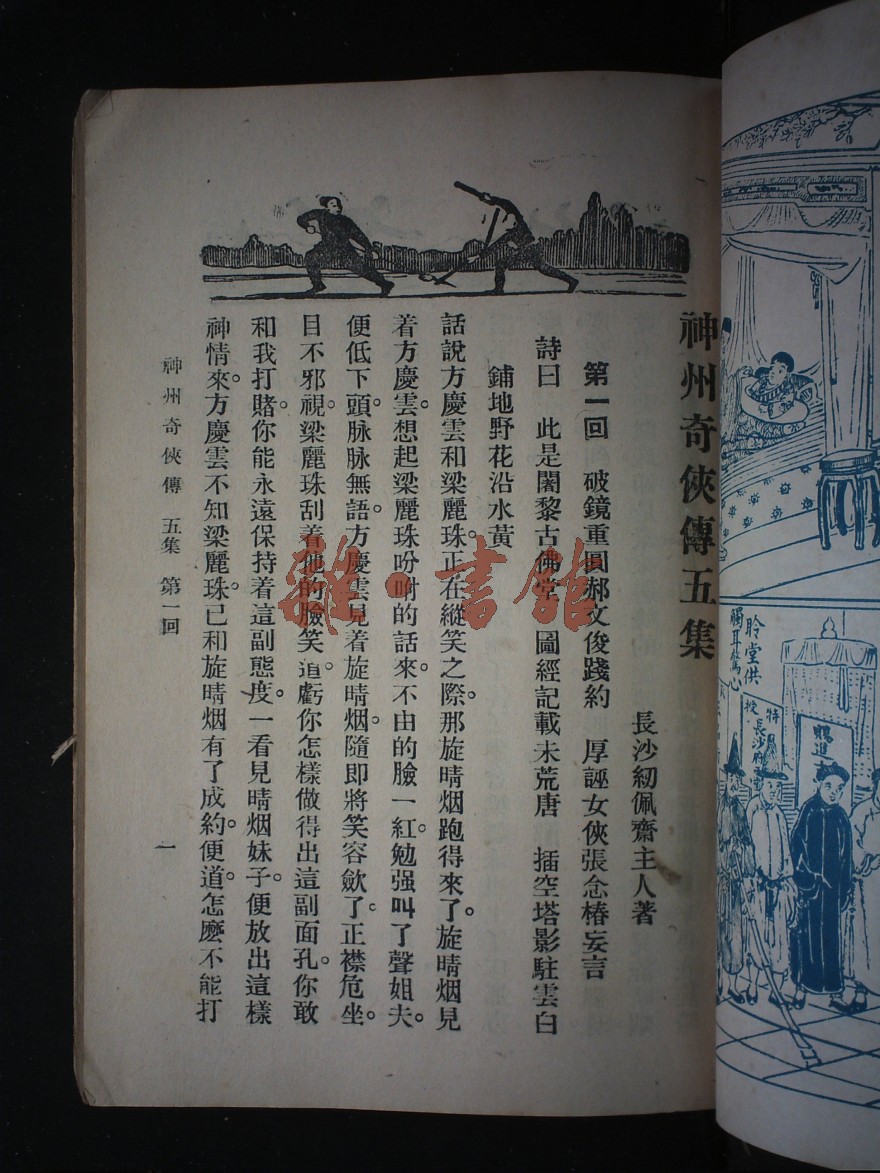 神州奇俠傳五集
長沙紉佩齋主人著
第一回　破鏡重圓郝文俊踐約　厚誣女俠張念椿妄言
詩曰　此是闍黎古佛堂　圖經記載未荒唐　插空塔影駐雲白
鋪地野花沿水黃
話說方慶雲和梁麗珠。正在縱笑之際。那旋晴烟跑得來了。旋晴烟見
着方慶雲。想起梁麗珠吩咐的話來。不由的臉一紅。勉强叫了聲姐夫。
便低下頭。脉脉無語。方慶雲見着旋晴烟。隨即將笑容歛了。正襟危坐。
目不邪視。梁麗珠刮着他的臉笑道。虧你怎樣做得出這副面孔。你敢
和我打賭。你能永遠保持着這副態度。一看見晴烟妹子。便放出這樣
神情來。方慶雲不知梁麗珠。已和旋晴烟有了成約。便道。怎麽不能打
神州奇俠傳　五集　第一回
一
雜·書館
聆堂供
觸耳驚心
特
授
長沙府